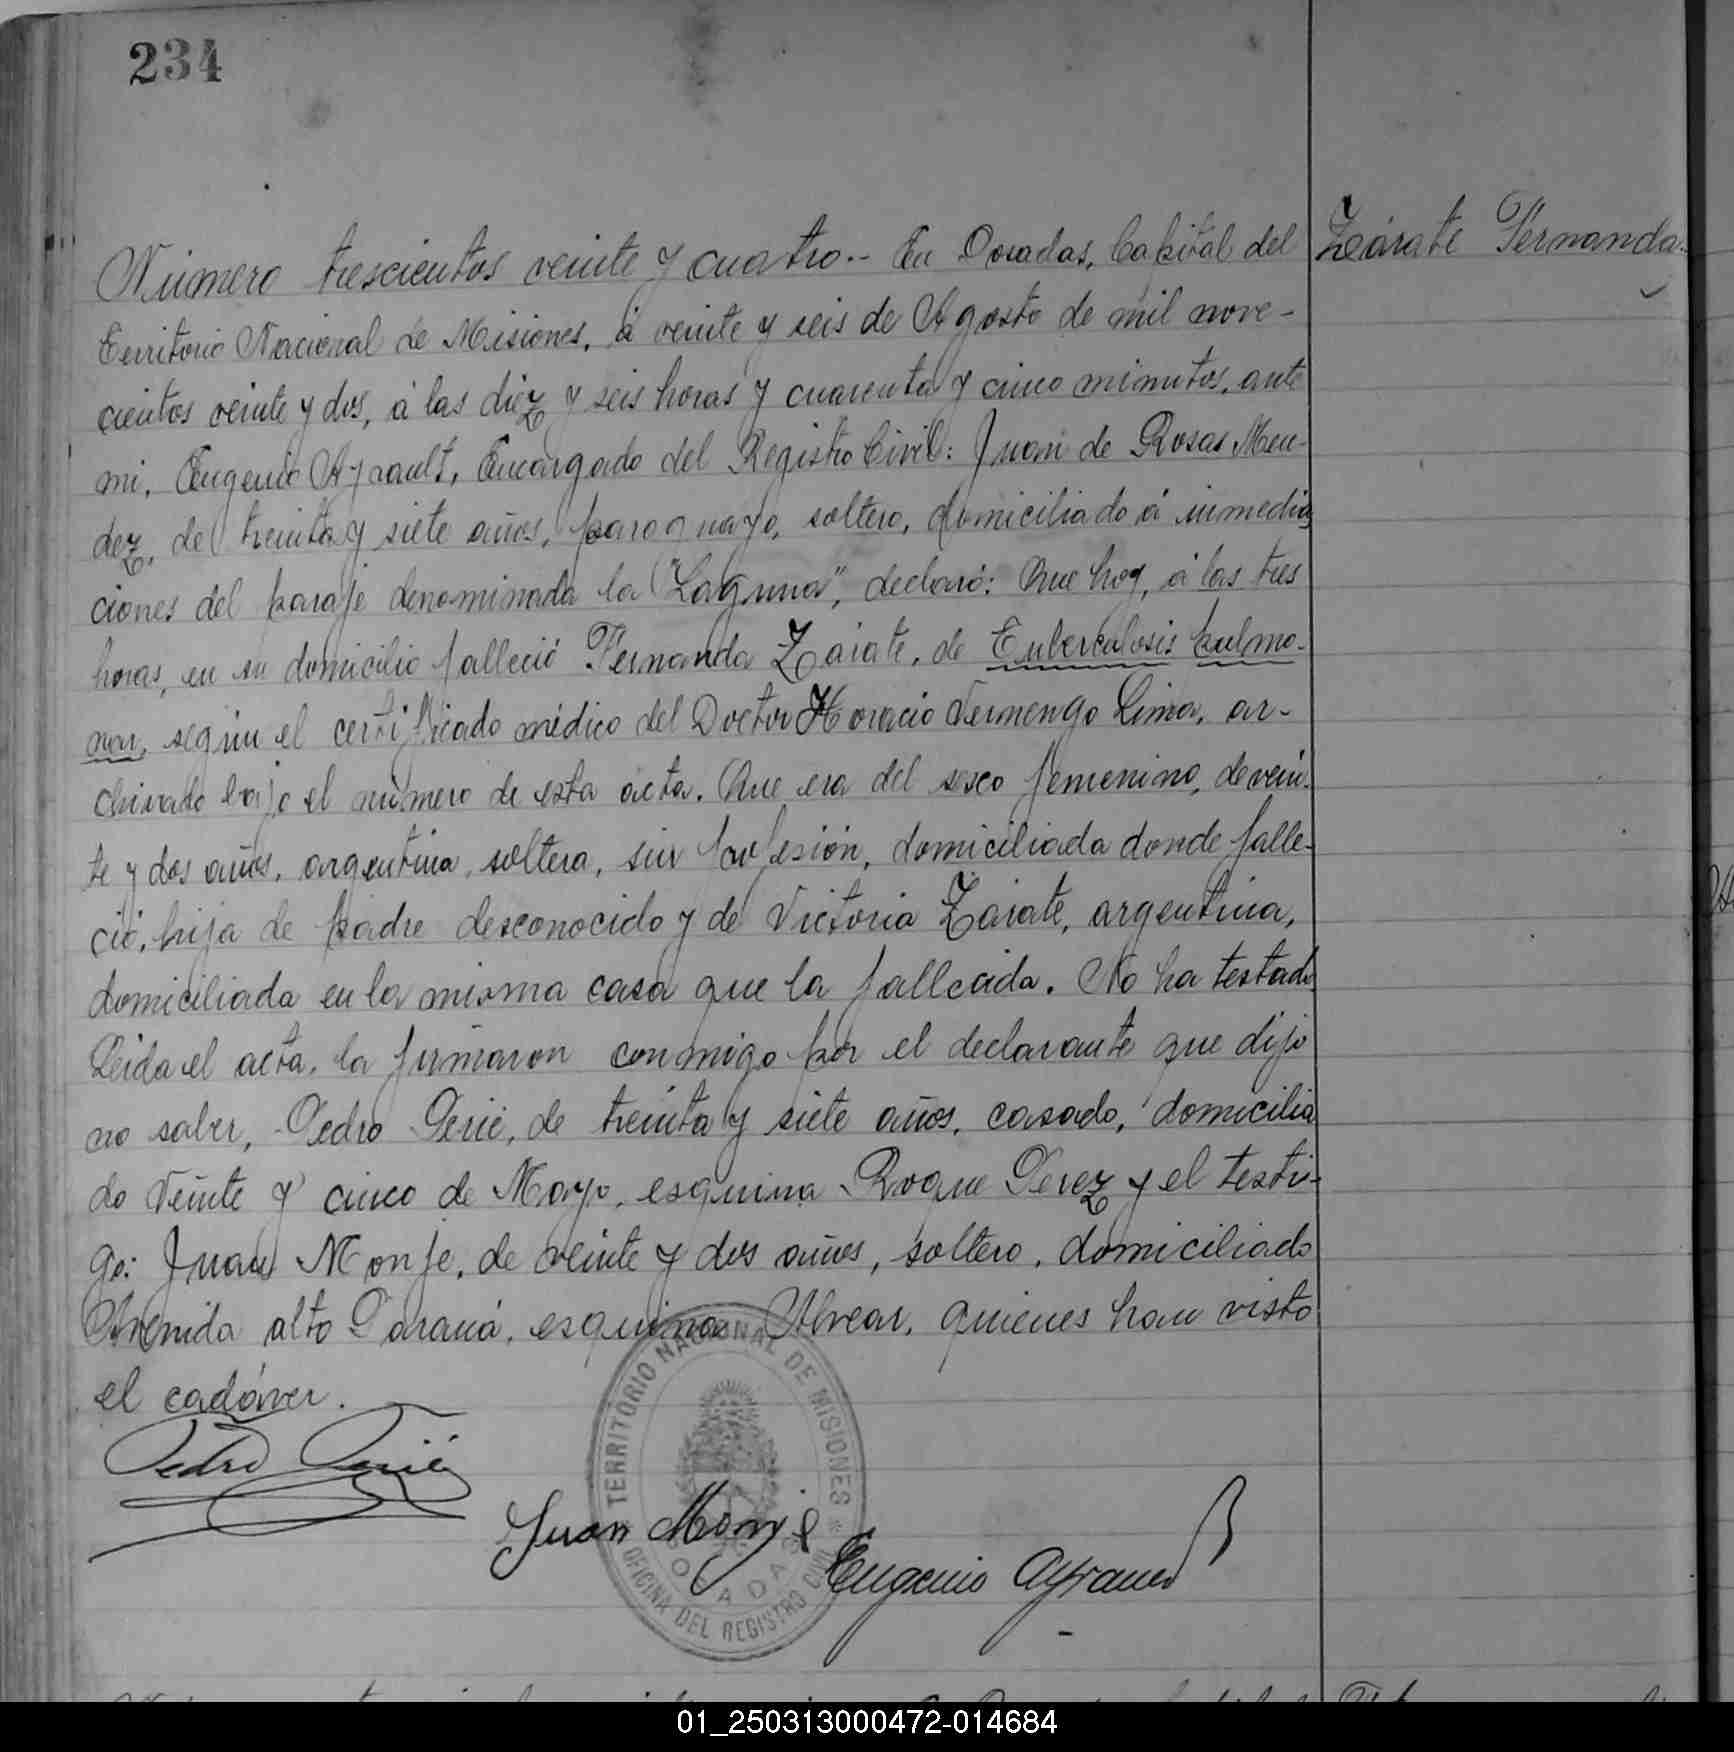 234
Zárate Fernanda.
Número trescientos veinte y cuatro.- En Posadas, Capital del
Territorio Nacional de Misiones, á veinte y seis de Agosto de mil nove-
cientos veinte y dos, á las diez y seis horas y cuarenta y cinco minutos, ante
mi, Eugenio Ayrault, Encargado del Registro Civil: Juan de Rosas Men-
dez, de treinta y siete años, paraguayo, soltero, domiciliado á inmedia
ciones del paraje denominada la "Laguna", declaró: Que hoy, á las tres
horas, en su domicilio falleció Fernanda Zárate, de Tuberculosis pulmo-
nar, según el certificado médico del Doctor Horacio Vermengo Lima, ar-
chivado bajo el número de esta acta. Que era del sexo femenino, de vein-
te y dos años, argentina, soltera, sin profesión, domiciliada donde falle-
ció, hija de padre desconocido y de Victoria Zárate, argentina,
domiciliada en la misma casa que la fallecida. No ha testado
Leida el acta, la firmaron conmigo por el declarante que dijo
no saber, Pedro Perié, de treinta y siete años, casado, domicilia
do Veinte y cinco de Mayo, esquina Roque Perez y el testi-
go: Juan Monje, de veinte y dos años, soltero, domiciliado
Avenida alto Paraná, esquina Alvear, quienes han visto
el cadáver.
Pedro Perié
Juan Monje
Eugenio Ayrault
TERRITORIO NACIONAL DE MISIONES
POSADAS
OFICINA DEL REGISTRO CIVIL
01_250313000472-014684